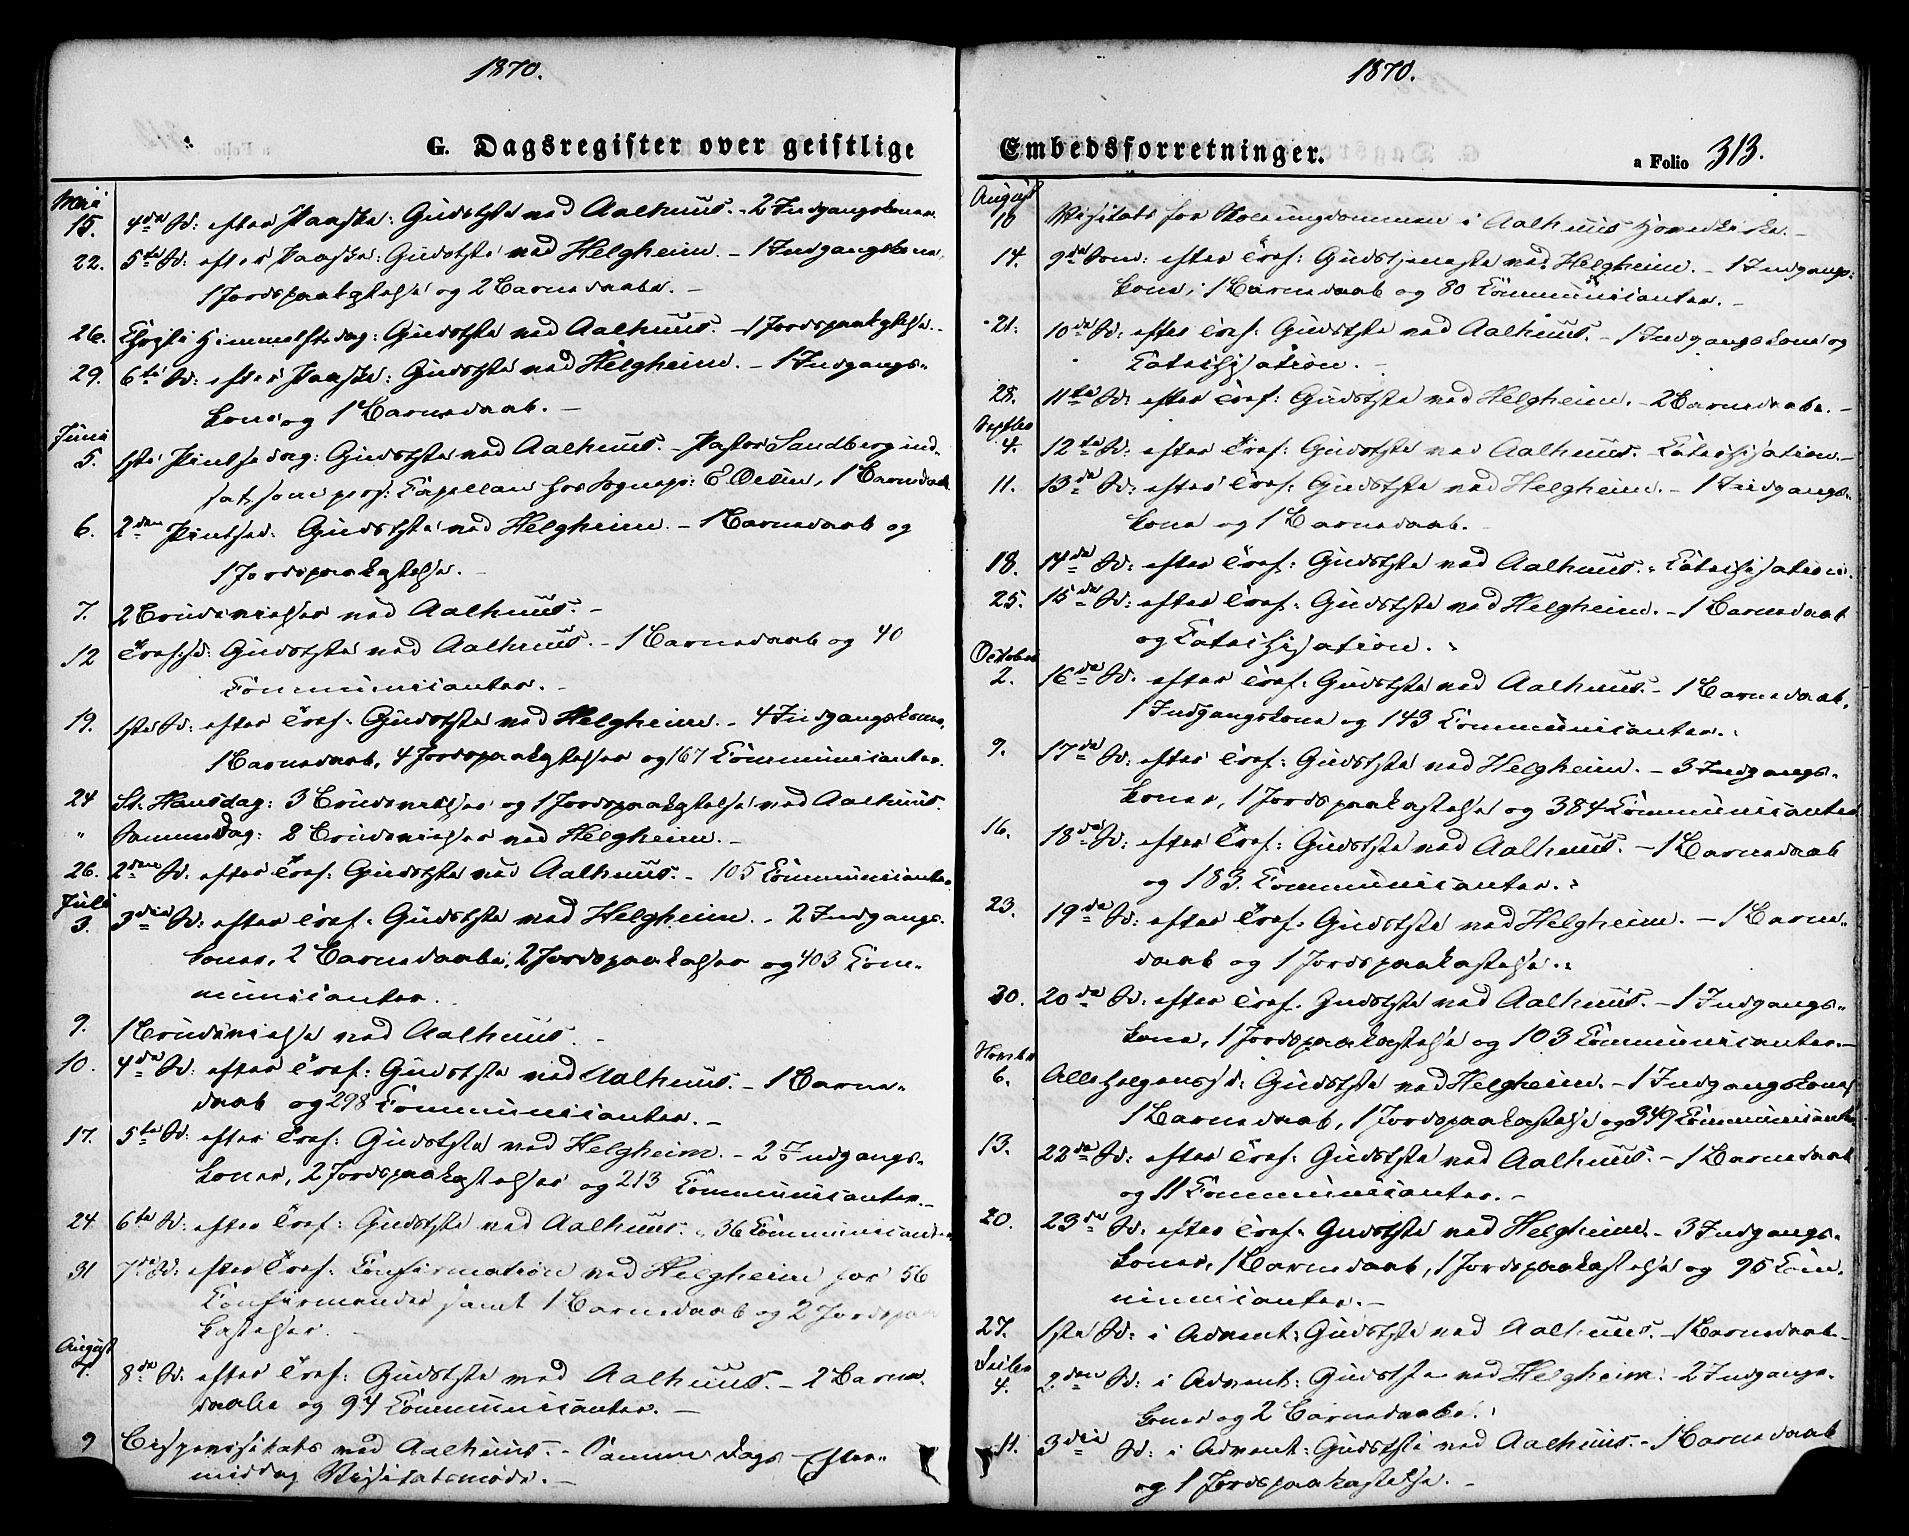 1870.
G. Dagsregister over geistlige
Mai
15. 4de Sd: efter Paaske: Gudstste ved Aalhuus. - 2 Indgangskoner.
22. 5te Sd: efter Paaske: Gudstste ved Helgheim. - 1 Indgangskone,
1 Jordspaakastelse og 2 Barnedaabe. -
26. Christi Himmelftsdag: Gudstste ved Aalhuus. - 1 Jordspaakastelse. -
29. 6te Sd: efter Paaske: Gudstste ved Helgheim. - 1 Indgangs-
kone og 1 Barnedaab. -
Juni
5. 1ste Pintsedag: Gudstste ved Aalhuus. - Pastor Sandberg ind-
sat som pers: Capellan hos Sognepr: E. Deiin, 1 Barnedaab
6. 2den Pintsed: Gudstste ved Helgheim. - 1 Barnedaab og
1 Jordspaakastelse. -
7. 2 Brudevielser ved Aalhuus. -
12 Tref:sd: Gudstste ved Aalhuus. - 1 Barnedaab og 40
Communicanter. -
19. 1ste Sd: efter Tref: Gudstste ved Helgheim. - 4 Indgangskoner,
1 Barnedaab, 4 Jordspaakastelser og 167 Communicanter.
24 St. Hansdag: 3 Brudevielser og 1 Jordspaakastelse ved Aalhuus.
" Samme Dag: 2 Brudevielser ved Helgheim. -
26. 2den Sd: efter Tref: Gudstste ved Aalhuus. - 105 Communicanter.
Juli
3. 3die Sd: efter Tref: Gudstste ved Helgheim. - 2 Indgangs-
koner, 2 Barnedaabe, 2 Jordspaakastelser og 403 Com-
municanter.
9. 1 Brudevielse ved Aalhuus. -
10. 4de Sd: efter Tref: Gudstste ved Aalhuus. - 1 Barne-
daab og 298 Communicanter. -
17. 5te Sd: efter Tref: Gudstste ved Helgheim. - 2 Indgangs-
koner, 2 Jordspaakastelser og 213 Communicanter. -
24. 6te Sd: efter Tref: Gudstste ved Aalhuus. - 36 Communicanter
31 7de Sd: efter Tref: Confirmation ved Helgheim for 56
Confirmander samt 1 Barnedaab og 2 Jordspaa
kastelser. -
August
7. 8de Sd: efter Tref: Gudstste ved Aalhuus. - 2 Barne-
daabe og 94 Communicanter. -
9 Bispevisitats ved Aalhuus. - Samme Dags Efter-
middag Visitatsmøde. -
1870.
Embedsforretninger. a Folio 313.
August
10 Visitats for Skoleungdommen i Aalhuus Hovedkirke. -
14. 9de Sønd: efter Tref: Gudstjeneste ved Helgheim. - 1 Indgangs-
kone, 1 Barnedaab og 80 Communicanter. -
21. 10de Sd: efter Tref: Gudstste ved Aalhuus. - 1 Indgangskone og
Catechisation. -
28. 11te Sd: efter Tref: Gudstste ved Helgheim. - 2 Barnedaabe. -
Septbr
4. 12te Sd: efter Tref: Gudstste ved Aalhuus. Catechisation. -
11. 13de Sd: efter Tref: Gudstste ved Helgheim. - 1 Indgangs-
kone og 1 Barnedaab. -
18. 14de Sd: efter Tref: Gudstste ved Aalhuus. - Catechisation.
25. 15de Sd: efter Tref: Gudstste ved Helgheim. - 1 Barnedaab
og Catechisation. -
October
2. 16de Sd. efter Tref: Gudstste ved Aalhuus. - 1 Barnedaab,
1 Indgangskone og 143 Communicanter. -
9. 17de Sd: efter Tref: Gudstste ved Helgheim. - 3 Indgangs-
koner, 1 Jordspaakastelse og 384 Communicanter
16. 18de Sd: efter Tref: Gudstste ved Aalhuus. - 1 Barnedaab
og 183 Communicanter. -
23. 19de Sd: efter Tref: Gudstste ved Helgheim. - 1 Barne-
daab og 1 Jordspaakastelse. -
30. 20de Sd. efter Tref. Gudstste ved Aalhuus. - 1 Indgangs-
kone, 1 Jordspaakastelse og 103 Communicanter. -
Novbr
6. Allehelgenssd: Gudstste ved Helgheim. - 1 Indgangskone,
1 Barnedaab, 1 Jordspaakastelse og 349 Communicanter
13. 22de Sd: efter Tref: Gudstste ved Aalhuus. - 1 Barnedaab
og 11 Communicanter. -
20. 23de Sd: efter Tref: Gudstste ved Helgheim. - 3 Indgangs-
koner, 1 Barnedaab, 1 Jordspaakastelse og 95 Com-
municanter. -
27. 1ste Sd: i Advent: Gudstste ved Aalhuus. - 1 Barnedaab -
Decbr
4. 2den Sd: i Advent: Gudstste ved Helgheim: 2 Indgangs-
koner og 2 Barnedaabe. -
11. 3die Sd: i Advent: Gudstste ved Aalhuus. - 1 Barnedaab
og 1 Jordspaakastelse. -